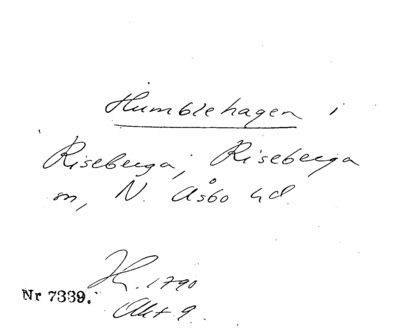 Humblehagen i
Riseberga, Riseberga
sn, N. Åsbo hd.
H. 1790
Nr 7339.
Akt 9.